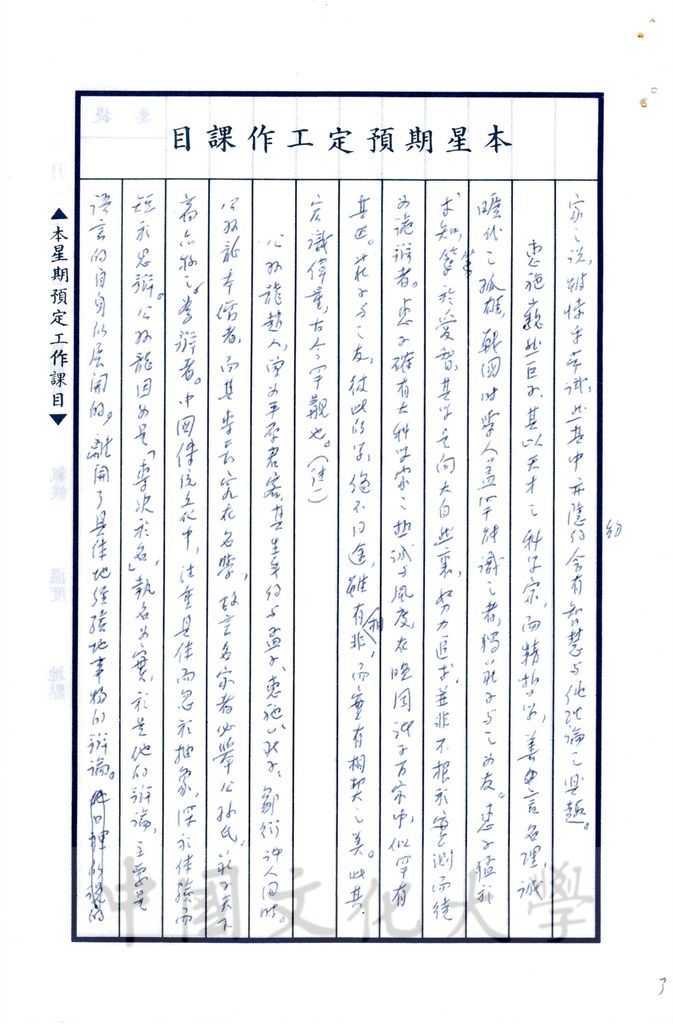 本星期預定工作課目
家之說,辯悖乎常識,然其中亦隱約含有智慧與他理論之興趣。
惠施巍然巨子,其以天才之科學家,而精於學,善由言名理,誠
曠代之孤雄,戰國時學人,蓋罕能識之者,獨莊子與之為友。惠子猛於
求知,篤於愛智,其學是向大自然裏,努力追求,並非不根於實測而徒
為詭辯者。惠子確有大科學家之熱誠與風度,在晚周諸子百家中,似罕有
其匹。莊子與之友,彼此所學,絕不同途,雖有相非,而實有相契之美。此其
宏識偉量,古今罕觀也。(註一)
公孫龍趙人,曾為平原君客,其生年約與孟子、惠施、莊子、鄒衍諸人同時。
公孫龍本儒者,而其專長實在名學,故言名家者必舉公孫氏,莊子天下
高亦稱之為辯者。中國傳統文化中,注重具体而忽於抽象,深於体驗而
短於思辯。公孫龍因為是「專決於名」,執名為實,於是他的辯論,主要是
語言的自身所展開的,離開了具体地經驗地事物的辯論。
▲本星期預定工作課目▼
中國文化大學
3